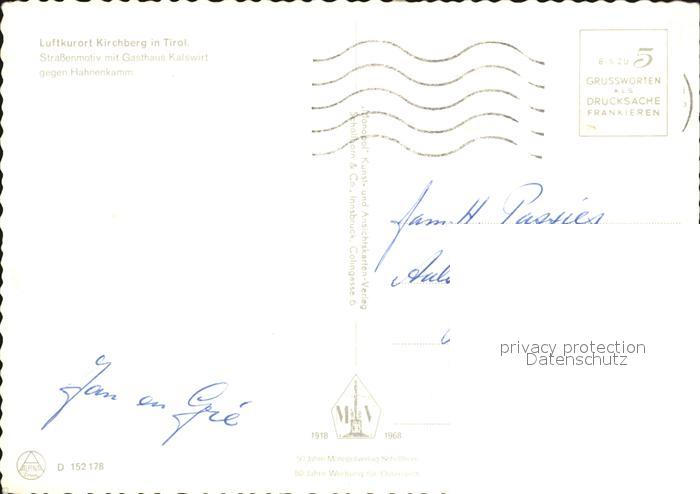 Luftkurort Kirchberg in Tirol.
Straßenmotiv mit Gasthaus Kalswirt
gegen Hahnenkamm
BIS ZU 5
GRUSSWORTEN
ALS
DRUCKSACHE
FRANKIEREN
„Monopol“ Kunst- und Ansichtskarten-Verlag
Schöllhorn & Co., Innsbruck, Colingasse 6
Fam. H. Passies
privacy protection
Datenschutz
Jan en Gré
M V
1918 1968
50 Jahre Monopolverlag Schöllhorn
50 Jahre Werbung für Österreich
D 152178